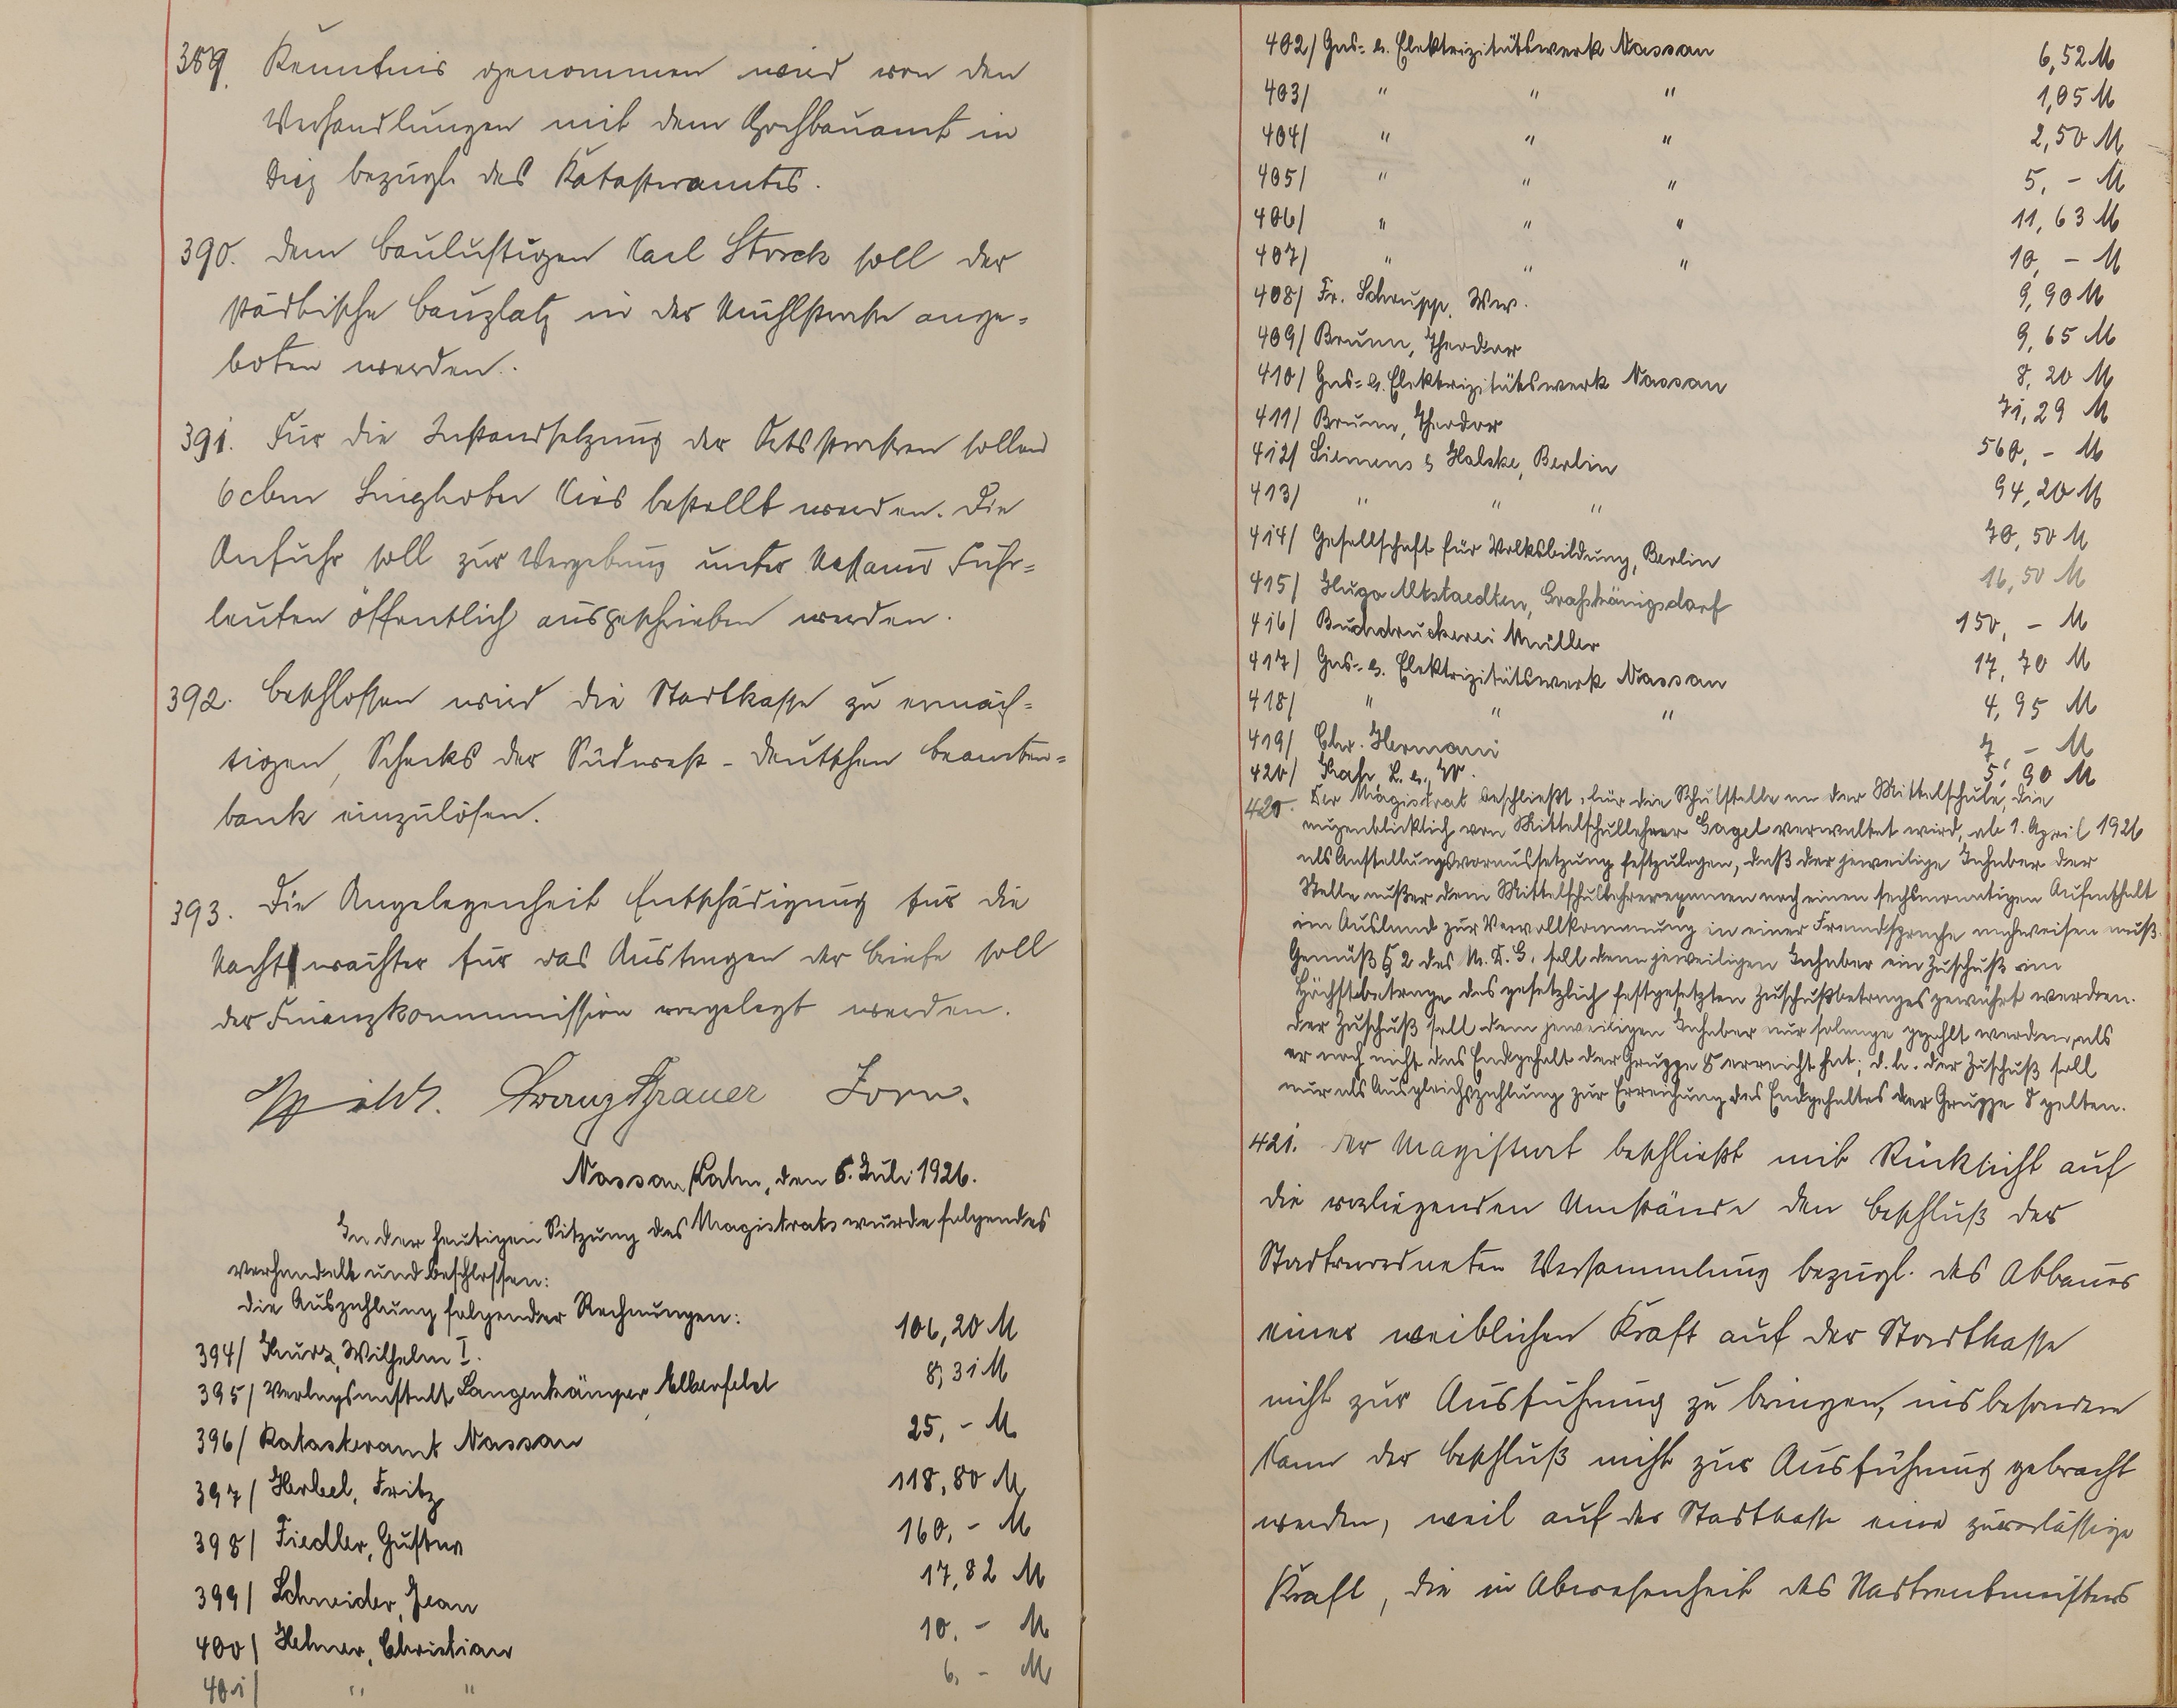 389. Kenntnis genommen wird von den
Verhandlungen mit dem Hochbauamt in
Diez bezügl. des Katasteramtes.
390. Dem Baulustigen Karl Storck soll der
städtische Bauplatz in der Mühlstrasse ange-
boten werden.
391. Für die Instandsetzung der Ortsstrassen sollen
6 cbm Singhofer Kies bestellt werden. Die
Anfuhr soll zur Vergebung unter Nassauer Fuhr-
leuten öffentlich ausgeschrieben werden.
392. Beschlossen wird die Stadtkasse zu ermäch-
tigen, Schecks der Südwest-Deutschen Beamten-
bank einzulösen.
393. Die Angelegenheit Entschädigung für die
Nachtwächter für das Austragen der Briefe soll
der Finanzkommission vorgelegt werden.
Franz Grauer Zorn.
Nassau/Lahn, den 6. Juli 1926.
In der heutigen Sitzung des Magistrats wurde folgendes
verhandelt und beschlossen:
Die Auszahlung folgender Rechnungen:
394/ Kurz, Wilhelm I. 106,20 M
395/ Verlagsanstalt Langenkämper Elberfeld 8,31 M
396/ Katasteramt Nassau 25,- M
397/ Herbel, Fritz 118,80 M
398/ Fiedler, Gustav 160,- M
399/ Schneider, Jean 17,82 M
400/ Hehner, Christian 10,- M
401/ " " 6,- M
402/ Gas- u. Elektrizitätswerk Nassau 6,52 M
403/ " " " 1,05 M
404/ " " " 2,50 M
405/ " " " 5,- M
406/ " " " 11,63 M
407/ " " " 10,- M
408/ Fr. Schrupp, Ww. 9,90 M
409/ Brunn, Theodor 9,65 M
410/ Gas- u. Elektrizitätswerk Nassau 8,20 M
411/ Brunn, Theodor 71,29 M
412/ Siemens & Halske, Berlin 560,- M
413/ " " " 94,20 M
414/ Gesellschaft für Volksbildung, Berlin 70,50 M
415/ Hugo Altstaedten, Grosskönigsdorf 16,50 M
416/ Buchdruckerei Müller 150,- M
417/ Gas- u. Elektrizitätswerk Nassau 17,70 M
418/ " " " 4,95 M
419/ Chr. Hermani 7,- M
420/ 5,90 M
420. Der Magistrat beschließt, für die Schulstelle an der Mittelschule, die
augenblicklich von Mittelschullehrer Gagel verwaltet wird, ab 1. April 1926
als Anstellungsvoraussetzung festzulegen, daß der jeweilige Inhaber der
Stelle außer dem Mittelschullehrerexamen noch einen sechsmonatigen Aufenthalt
im Ausland zur Vervollkommnung in einer Fremdsprache nachweisen muß.
Gemäß § 2 des M.D.G. soll dem jeweiligen Inhaber ein Zuschuß im
Höchstbetrage des gesetzlich festgesetzten Zuschußbetrages gewährt werden.
Der Zuschuß soll dem jeweiligen Inhaber nur solange gezahlt werden, als
er noch nicht das Endgehalt der Gruppe 8 erreicht hat; d.h. der Zuschuß soll
nur als Ausgleichszahlung zur Erreichung des Endgehaltes der Gruppe 8 gelten.
421. Der Magistrat beschließt mit Rücksicht auf
die vorliegenden Umstände den Beschluß der
Stadtverordneten Versammlung bezügl. des Abbaues
einer weiblichen Kraft auf der Stadtkasse
nicht zur Ausführung zu bringen, insbesondere
kann der Beschluß nicht zur Ausführung gebracht
werden, weil auf der Stadtkasse eine zuverlässige
Kraft, die in Abwesenheit des Stadtrentmeisters